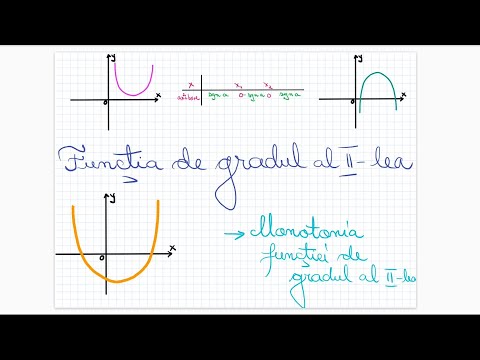 y
x
0
x x₁ x₂
ax²+bx+c sgn a 0 -sgn a 0 sgn a
y
x
0
Funcția de gradul al II-lea
y
x
0
→ Monotonia
funcției de
gradul al II-lea